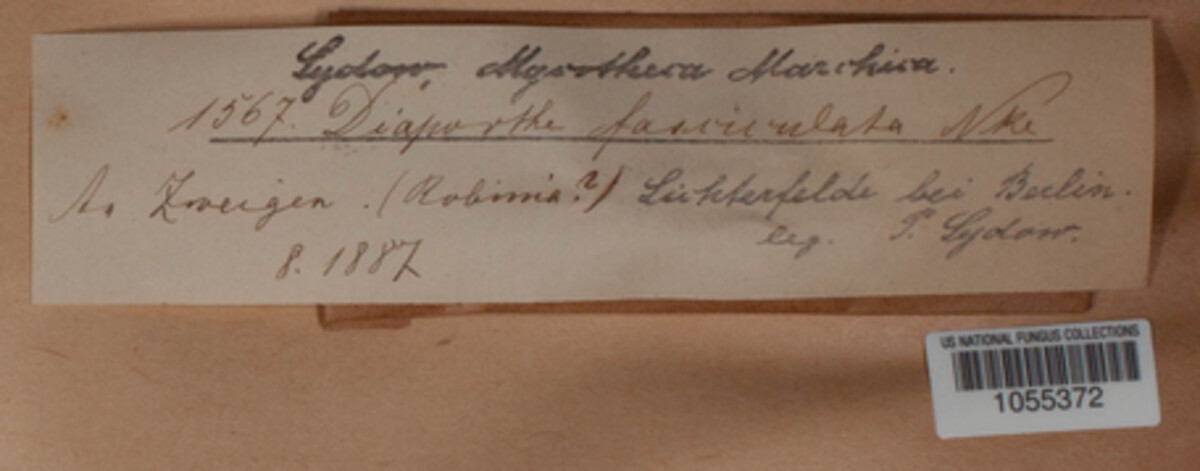 Sydow, Mycotheca Marchica.
1567. Diaporthe fasciculata Nke
An Zweigen. (Robinia?) Lichterfelde bei Berlin.
8. 1887 leg. P. Sydow.
US NATIONAL FUNGUS COLLECTIONS
1055372